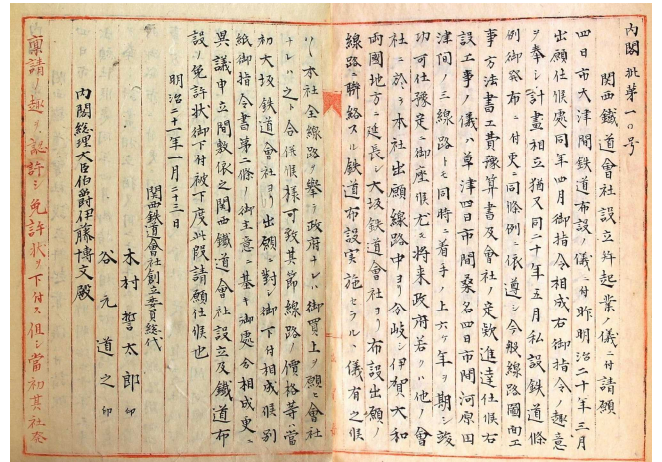 内閣批第一〇号
関西鐵道會社設立并起業ノ儀ニ付請願
四日市大津間鐵道布設ノ儀ニ付昨明治二十年三月
出願仕候處同年四月御指令相成右御指令ノ趣意
ヲ奉シ計畫相立猶又同二十年五月私設鐵道條
例御發布ニ付更ニ同條例ニ依遵シ今般線路圖面工
事方法書工費豫算書及會社ノ定欵進達仕候右
設工事ノ儀ハ草津四日市間桑名四日市間河原田
津間ノ三線路トモ同時ニ着手ノ上六ケ年ヲ期シ竣
功可仕豫定御座候尤モ将来政府若クハ他ノ會
社ニ於テ本社出願線路中ヨリ分岐シ伊賀大和
両國地方ニ延長シ大坂鐵道會社ヨリ布設出願ノ
線路ニ聯絡スル鐵道布設実施セラルヽ儀有之候
ハヽ本社全線路ヲ擧テ政府ナレハ御買上ヲ願ヒ會社
ナレハ之ト合併候様可致其節線路ノ價格等ハ當
初大坂鐵道會社ヨリ出願ニ對シ御下付相成候別
紙御指令書第二條ノ御主意ニ基キ御處分相成更ニ
異議申立間敷候依之関西鐵道會社設立及鐵道布
設ノ免許状御下付被下度此段請願仕候也
明治二十一年一月二十三日
関西鐵道會社創立委員総代
木村誓太郎印
谷元道之印
内閣総理大臣伯爵伊藤博文殿
稟請ノ趣ヲ認許シ免許状ヲ下付ス但シ當初其社奈